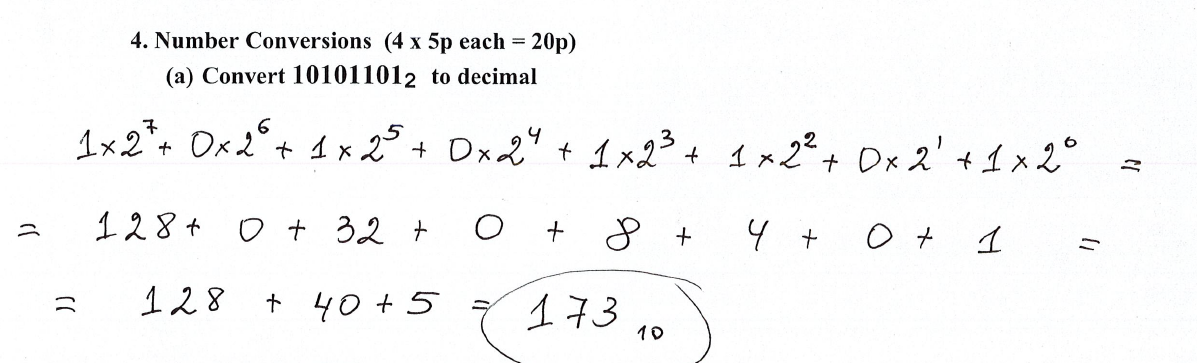 4. Number Conversions (4 x 5p each = 20p)
(a) Convert 10101101₂ to decimal
1×2⁷+ 0×2⁶+ 1×2⁵ + 0×2⁴ + 1×2³ + 1×2²+ 0×2¹ +1×2⁰ =
= 128+ 0 + 32 + 0 + 8 + 4 + 0 + 1 =
= 128 + 40+5 = 173₁₀